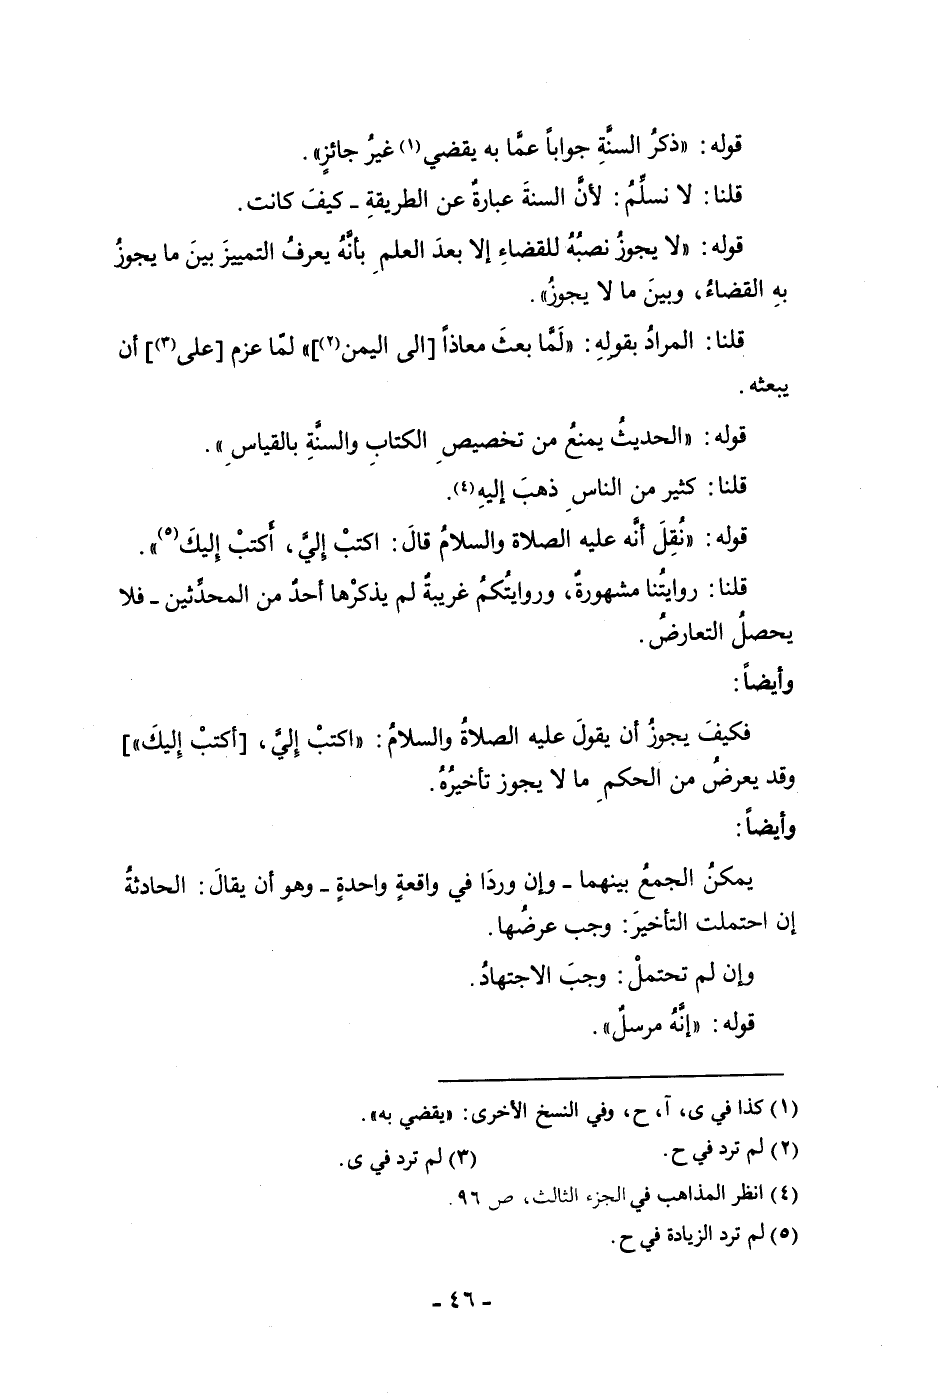 قوله: «ذكرُ السنَّةِ جواباً عمَّا به يقضي(١) غيرُ جائزٍ».
قلنا: لا نسلِّمُ: لأنَّ السنةَ عبارةٌ عن الطريقةِ ـ كيفَ كانت.
قوله: «لا يجوزُ نصبُهُ للقضاءِ إلا بعدَ العلمِ بأنَّهُ يعرفُ التمييزَ بينَ ما يجوزُ
بهِ القضاءُ، وبينَ ما لا يجوزُ».
قلنا: المرادُ بقولِهِ: «لَمَّا بعثَ معاذاً [الى اليمن(٢)]» لمّا عزم [على(٣)] أن
يبعثه.
قوله: «الحديثُ يمنعُ من تخصيصِ الكتابِ والسنَّةِ بالقياسِ».
قلنا: كثير من الناسِ ذهبَ إليهِ(٤).
قوله: «نُقِلَ أنَّه عليه الصلاة والسلامُ قالَ: اكتبْ إليَّ، أَكتبْ إليكَ(٥)».
قلنا: روايتُنا مشهورةٌ، وروايتُكمُ غريبةٌ لم يذكرْها أحدٌ من المحدِّثين ـ فلا
يحصلُ التعارضُ.
وأيضاً:
فكيفَ يجوزُ أن يقولَ عليه الصلاةُ والسلامُ: «اكتبْ إليَّ، [أكتبْ إليكَ»]
وقد يعرضُ من الحكمِ ما لا يجوز تأخيرُهُ.
وأيضاً:
يمكنُ الجمعُ بينهما ـ وإن وردَا في واقعةٍ واحدةٍ ـ وهو أن يقالَ: الحادثةُ
إن احتملت التأخيرَ: وجب عرضُها.
وإن لم تحتملْ: وجبَ الاجتهادُ.
قوله: «إنَّهُ مرسلٌ».
(١) كذا في ى، آ، ح، وفي النسخ الأخرى: «يقضي به».
(٢) لم ترد في ح. (٣) لم ترد في ى.
(٤) انظر المذاهب في الجزء الثالث، ص ٩٦.
(٥) لم ترد الزيادة في ح.
ـ ٤٦ ـ